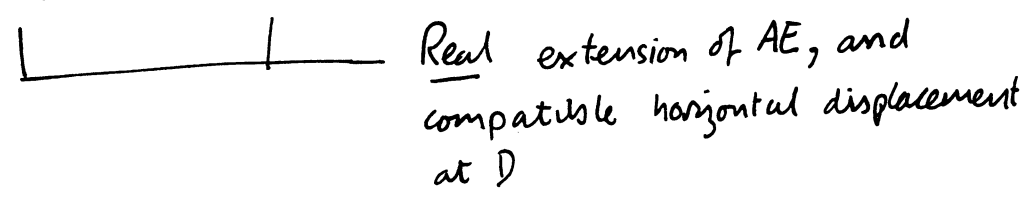 Real extension of AE, and
compatible horizontal displacement
at D